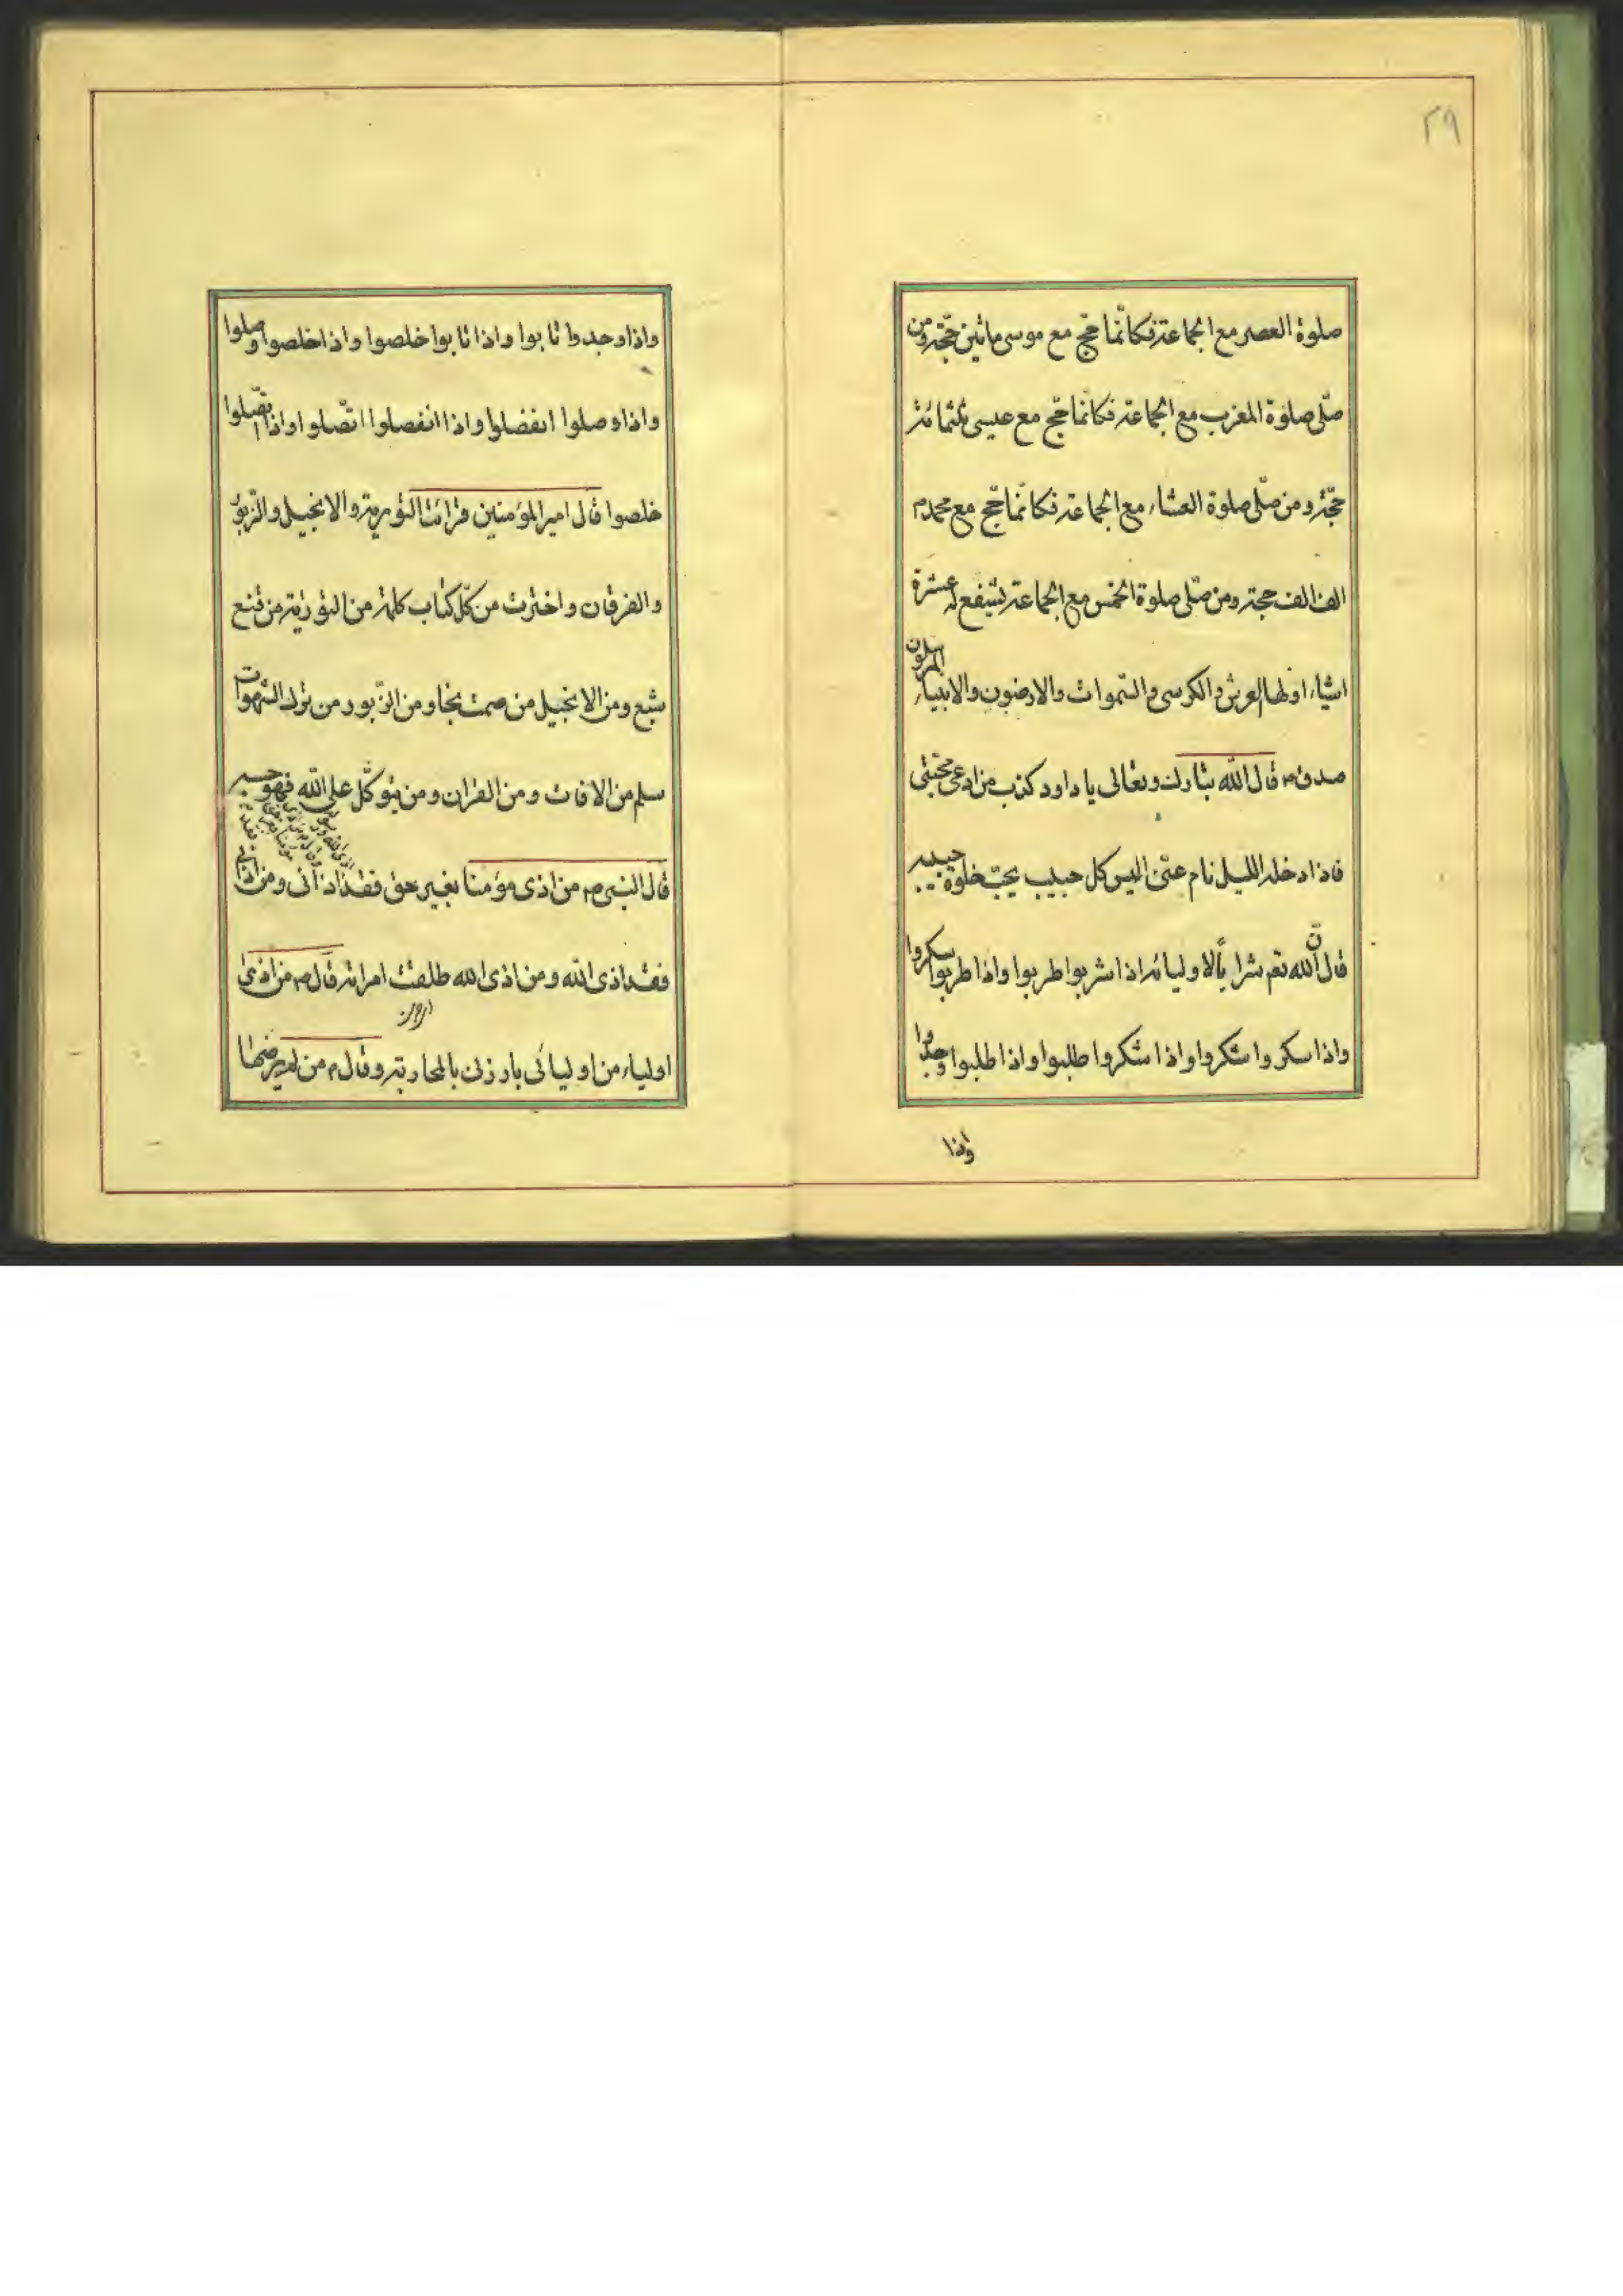 ٢٩
صلوة العصر مع الجماعة فكانّما حجّ مع موسى مأتين حجّة ومن
صلّى صلوة المغرب مع الجماعة فكانّما حجّ مع عيسى ثلثمائة
حجّة ومن صلّى صلوة العشاء مع الجماعة فكانّما حجّ مع محمد م
الف الف حجة ومن صلّى صلوة الخمس مع الجماعة يشفع له عشرة
اشياء اولها العرش والكرسى والسّموات والارضون والانبياء المرسلون
صدق م قال الله تبارك وتعالى يا داود كذب من ادعى محبّتى
فاذا دخله الليل نام عنّى اليس كل حبيب يحبّ خلوة حبيبه
قال انّ لله تعم شرابا لاوليائه اذا شربوا طربوا واذا طربوا سكروا
واذا سكروا شكروا واذا شكروا طلبوا واذا طلبوا وجدوا
واذا
واذا وجدوا تابوا واذا تابوا خلصوا واذا خلصوا وصلوا
واذا وصلوا انفصلوا واذا انفصلوا اتّصلوا واذا اتّصلوا
خلصوا قال امير المؤمنين قرائت التورية والانجيل والزّبور
والفرقان واخترت من كلّ كتاب كلمة من التورية من قنع
شبع ومن الانجيل من صمت نجا ومن الزّبور من ترك الشهوات
سلم من الافات ومن القران ومن يتوكّل على الله فهو حسبه
قال النبى ص من اذى مؤمنا بغير حق فقد اذانى ومن اذانى
فقد اذى الله ومن اذى الله طلقت امراته قال ص من اذى
اولياء من اوليائى بارزنى بالمحاربة وقال م من لم يرض بقضا